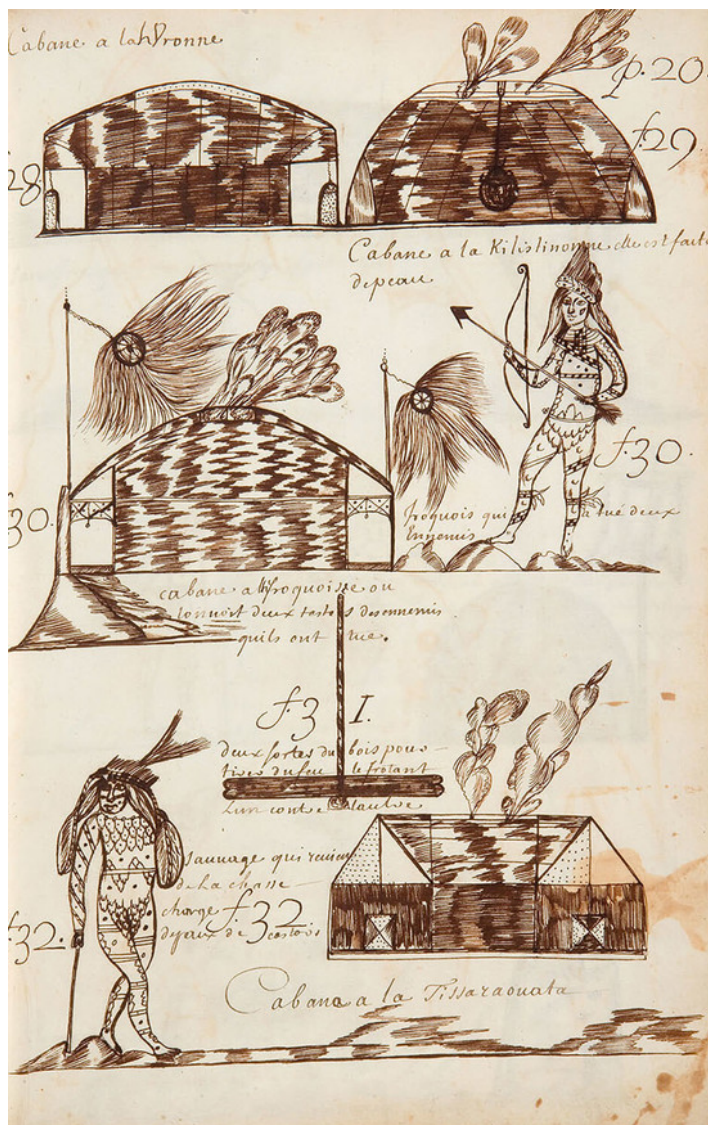 Cabane a la hVronne
p. 20.
28
f. 29.
Cabane a la Kilistinonne elle est faite
de peau
f. 30.
30.
Iroquois qui a tué deux
Ennemis
cabane a lhiroquoise ou
lon deux testes des ennemis
quils ont tue.
f. 3 I.
deux sortes du bois pour
tirer du feu le frotant
Lun contre Lautre
sauuage qui reuien
de La chasse
charge f. 32
de peaux de castors
f. 32.
Cabana a la Tissaraouata